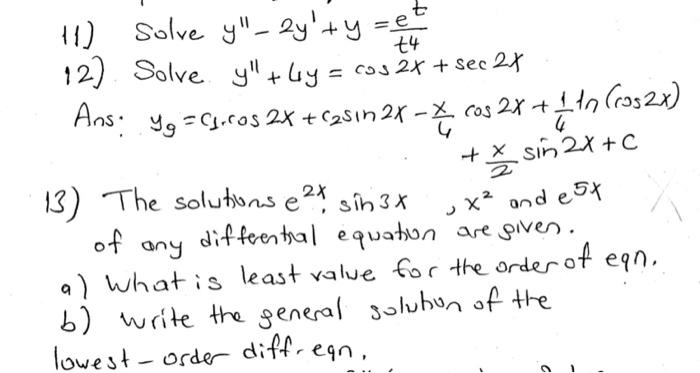 11) Solve y'' - 2y' + y = e^t/t4
12) Solve y'' + 4y = cos 2x + sec 2x
Ans: yg = c1.cos 2x + c2 sin 2x - x/4 cos 2x + 1/4 ln (cos2x)
+ x/2 sin 2x + c
13) The solutions e^2x, sin 3x , x² and e^5x
of any diffeential equation are given.
a) What is least value for the order of eqn.
b) write the general solution of the
lowest - order diff. eqn.